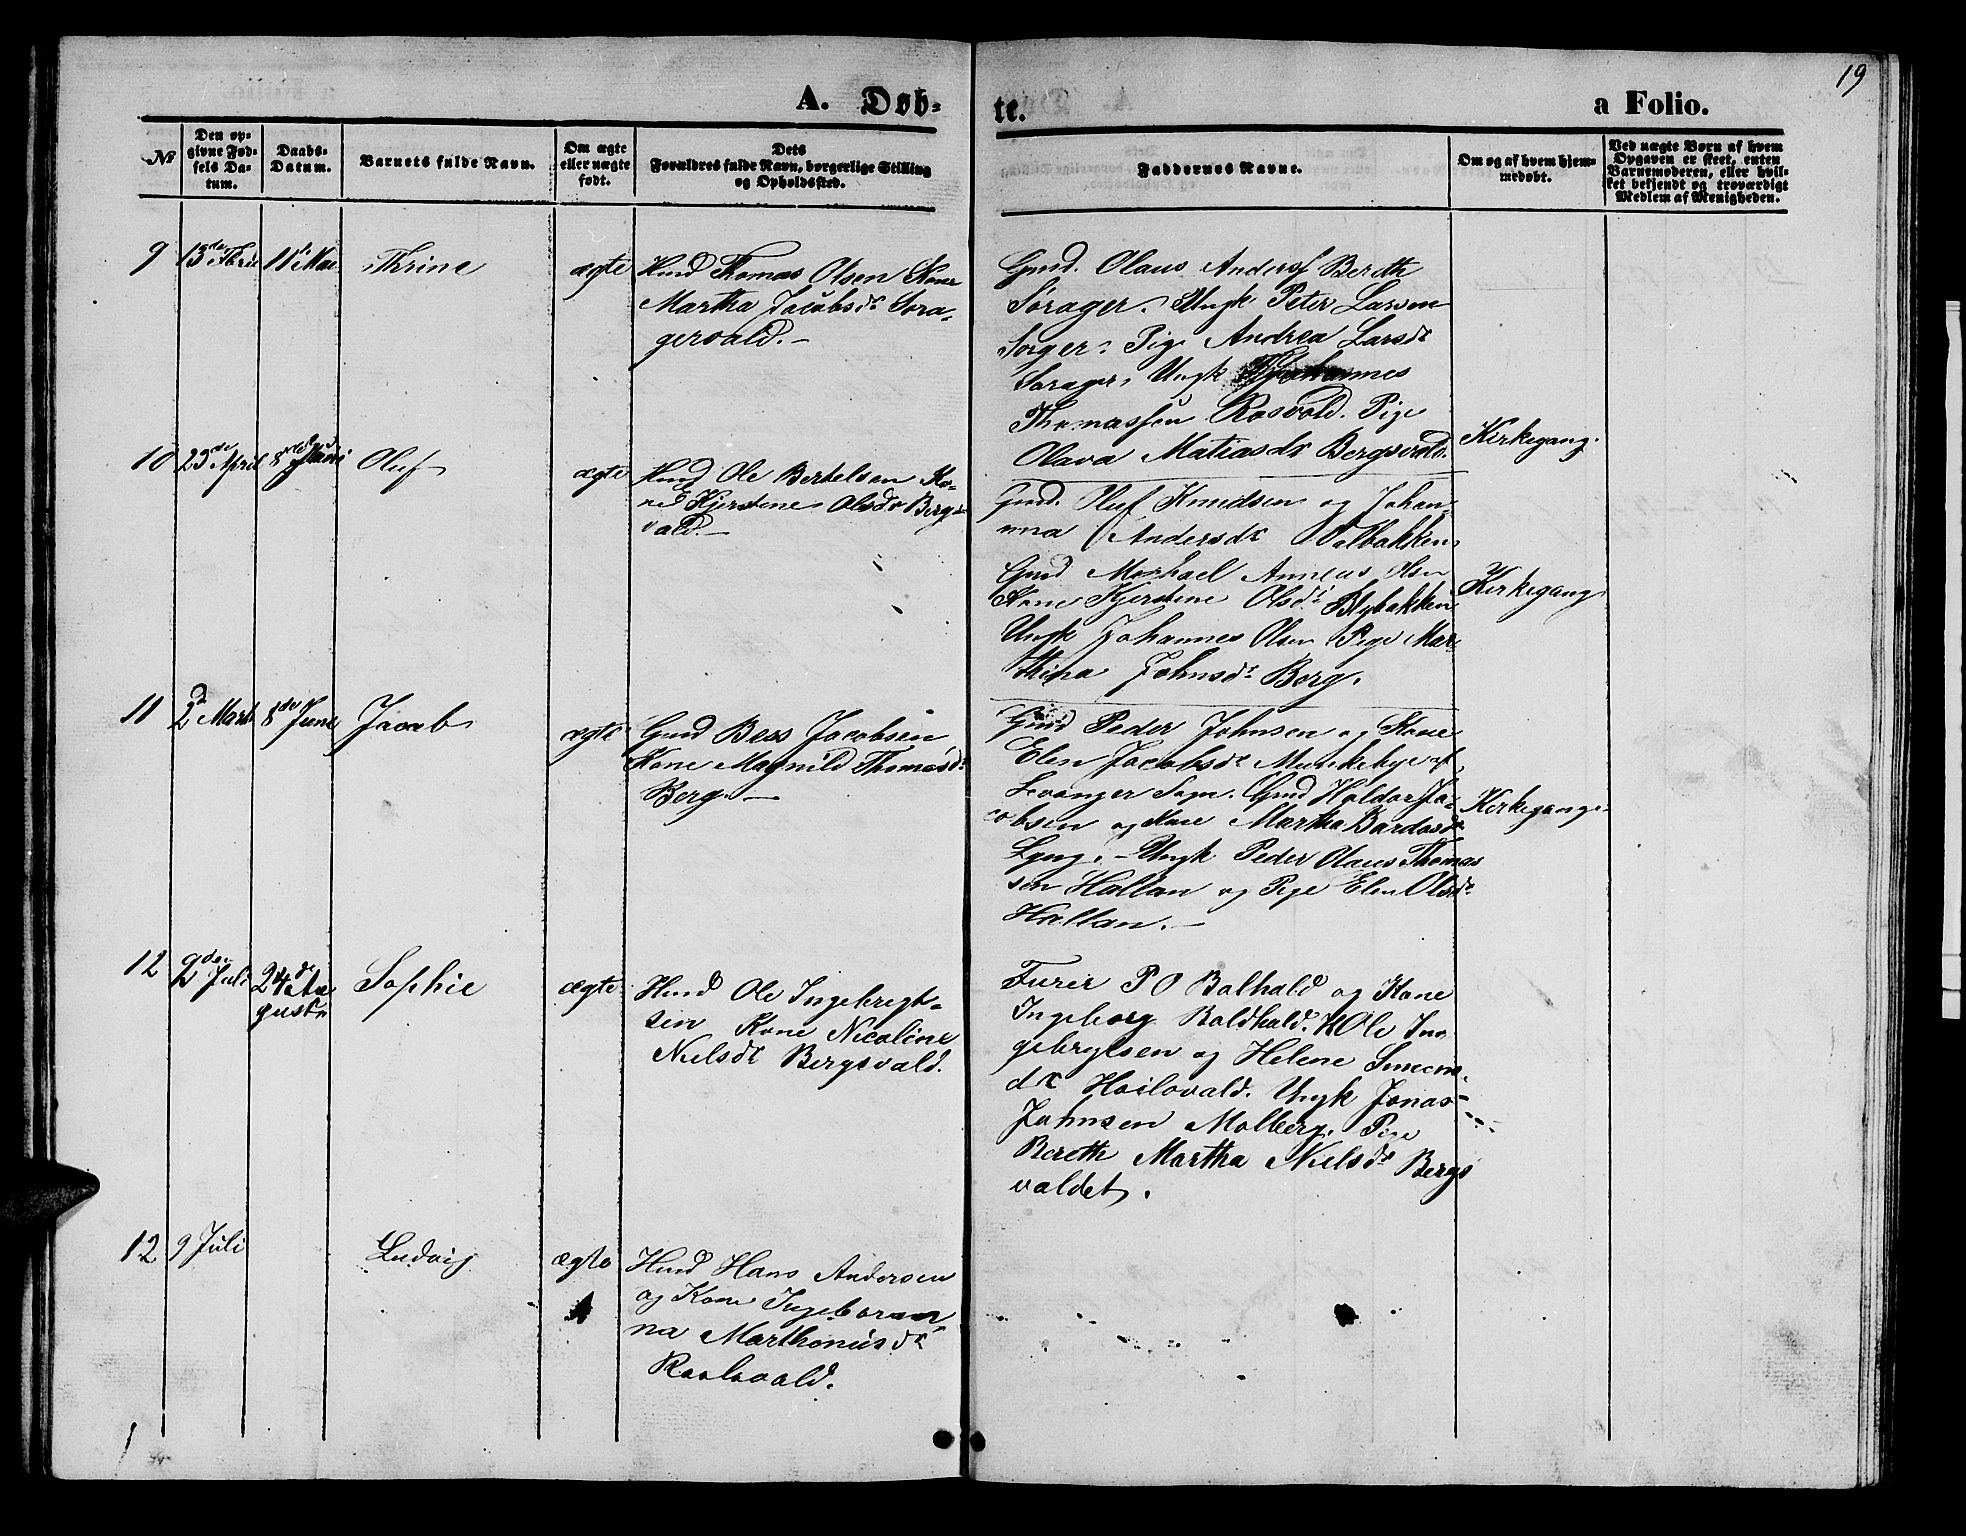 19
A. Døb-
te.
a Folio.
№
Den op-
givne Fød-
sels Da-
tum.
Daabs-
Datum.
Barnets fulde Navn.
Om ægte
eller uægte
født.
Dets
Forældres fulde Navn, borgerlige Stilling
og Opholdssted.
Faddernes Navne.
Om og af hvem hjem-
medøbt.
Ved uægte Børn af hvem
Opgaven er skeet, enten
Barnemoderen, eller hvil-
ket bekjendt og troværdigt
Medlem af Menigheden.
9
13de
11t Mai
Thrine
ægte
Huusd Thomas Olsen Kone
Martha Jacobsdt Sora-
gervald.-
Gmd. Olaus Anders Bereth
Sorager. Ungk Peter Larsen
Sorger. Pige Andrea Larsdt
Sorager, Ungk Johannes
Thomassen Rosvold. Pige
Olava Matiasdt Bergsvald.
10
23de April
8de
Oluf
ægte
Huusd Ole Bertelsen Ko-
ne Kjerstene Olsdt Bergs-
vald.-
Kirkegang.
Gmd. Oluf Knudsen og Johan-
nna Andersdt Valbakken
Gmd Michael Anneus Olsen
Kone Kjerstine Olsdt Blybakken
Ungk Johannes Olsen Pige Mar-
thina Johnsdt Borg.
Kirkegang
11
2d Marts
8de June
Jacob
ægte
Gmd Bess Jacobsen
Kone Magnild Thomasdt
Berg.-
Gmd Peder Johnsen og Kone
Elen Jacobsdt Munkebye af
Levanger Sogn. Gmd Haldor Ja-
cobsen og Kone Martha Bardosdt
Lyng. - Ungk Peder Olaus Thomas
sen Hallan og Pige Elen Olsdt
Hallan.-
Kirkegang.
12
2den Juli
24de Au
gust
Sophie
ægte
Huusd Ole Ingebrigt-
sen Kone Nicoline
Nielsdt Bergsvald.
Furer P O Balhald og Kone
Ingeborg Baldhald. Ole In-
gebrigtsen og Helene Simons-
dt Hoilovald. Ungk Jonas
Johnsen Molberg. Pige
Bereth Martha Nielsdt Bergs
valdet.
12
9 Juli
Ludvig
ægte
Huusd Hans Andersen
og Kone Ingeborgan-
na Marthoniusdt